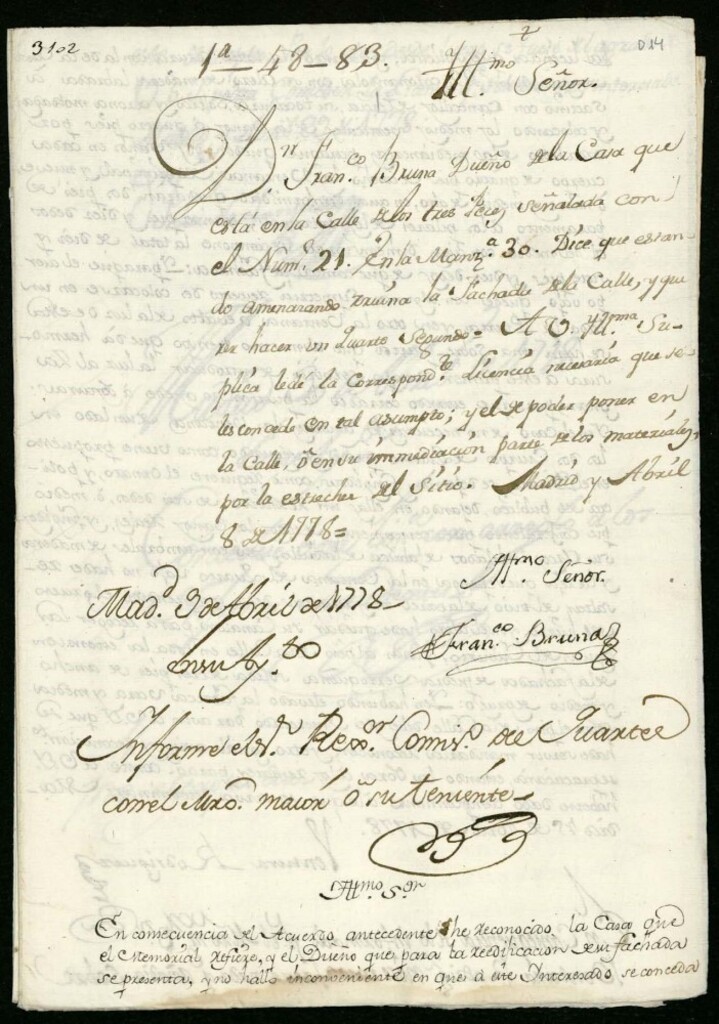 3102
014
1ª - 48 - 83.
Yllmo Señor.
Dn Franco. Bruna Dueño de la Casa que
está en la Calle de los tres Peces, señalada con
el Numº. 21. En la Manzª. 30. Dice que estan-
do amenazando ruina la fachada de la Calle, y que
rer hacer un Quarto Segundo = A V. Yllma. Su-
plica le dé la Correspondte. Licencia necesaria que se
les concede en tal asumpto; y el de poder poner en
la Calle, ò en su immediación parte de los materiales
por la estrechez del Sitio. Madrid y Abril
8 de 1778 =
Yllmo. Señor.
Franco. Bruna
Madd. 9 de Abril de 1778 -
en su Aytto
Informe el Sr. Rexor. Comiso. de Quartel
con el Mro. maior ò su teniente -
Yllmo. Sor
En consecuencia del Acuerdo antecedente he reconocido la Casa que
el Memorial refiere, y el Diseño que para la reedificacion de su fachada
se presenta, y no hallo inconveniente en que à este Interesado se conceda